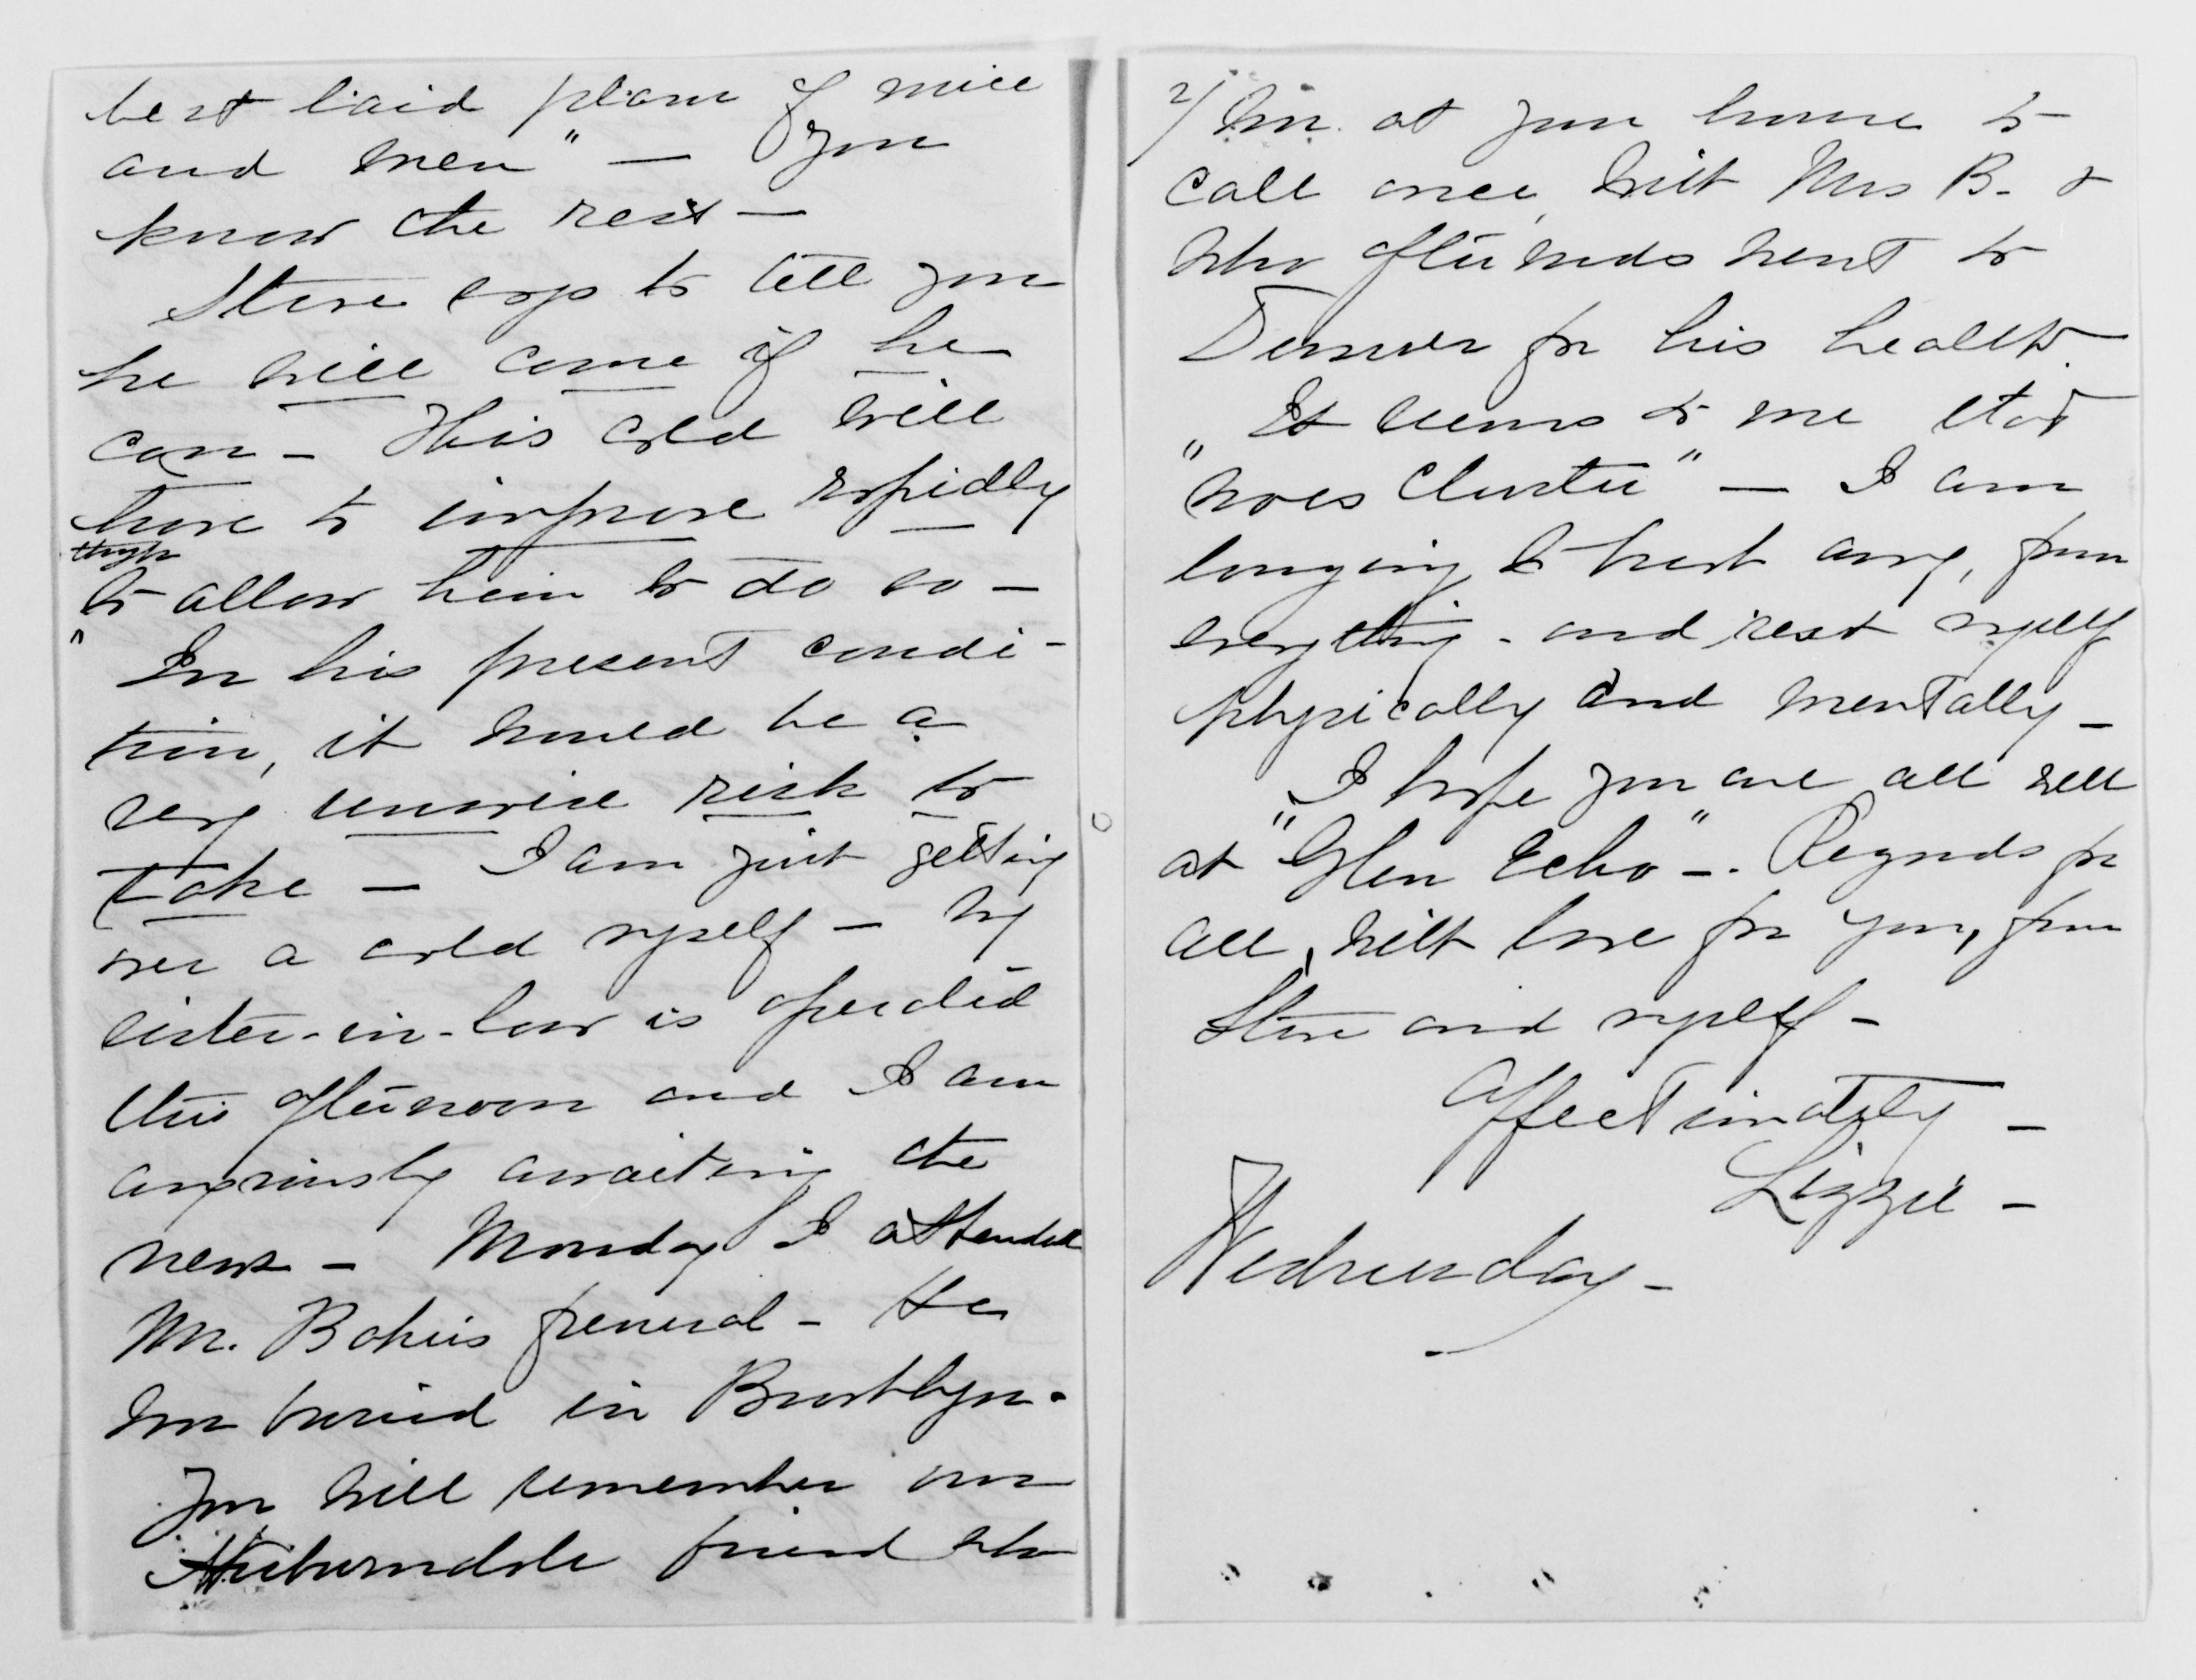 best laid plans of mice
and men" — you
know the rest —
Steve says to tell you
he will come if he
can - This cold will
have to improve rapidly
though
to allow him to do so —
" In his present condi-
tion, it would be a
very unwise risk to
take — I am just getting
over a cold myself — My
sister-in-law is operated
this afternoon and I am
anxiously awaiting the
news - Monday I attended
Mr. Bakers funeral - He
was buried in Brooklyn.
You will remember our
Auburndale friend who
2/ was at your house to
call once, with Mrs B. &
who afterwards went to
Denver for his health.
It seems to me that
"woes cluster" — I am
longing to get away, from
everything - and rest myself
physically and mentally -
I hope you are all well
at "Glen Echo" -. Regards for
all, with love for you, from
Steve and myself -
Affectionately -
Lizzie -
Wednesday -